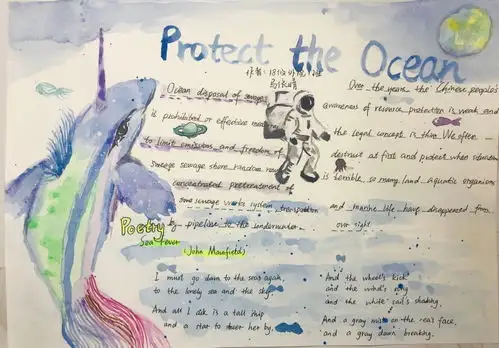 Protect the Ocean
Ocean disposal of sewage
is prohibited or effective
to limit emissions and freedom of
sewage sewage shore random
concentrated pretreatment of
some sewage works system
by pipeline to the underwater
Over the years, the Chinese people's
awareness of resource protection is weak and
the legal concept is thin. We often
destruct at first and protect when
is terrible, so many land aquatic organism
and marine life have disappeared from
our sight.
Poetry
Sea Fever
(John Masefield)
I must go down to the seas again,
to the lonely sea and the sky,
And all I ask is a tall ship
and a star to steer her by,
And the wheel's kick
and the wind's song
and the white sail's shaking,
And a gray mist on the sea's face,
and a gray dawn breaking.